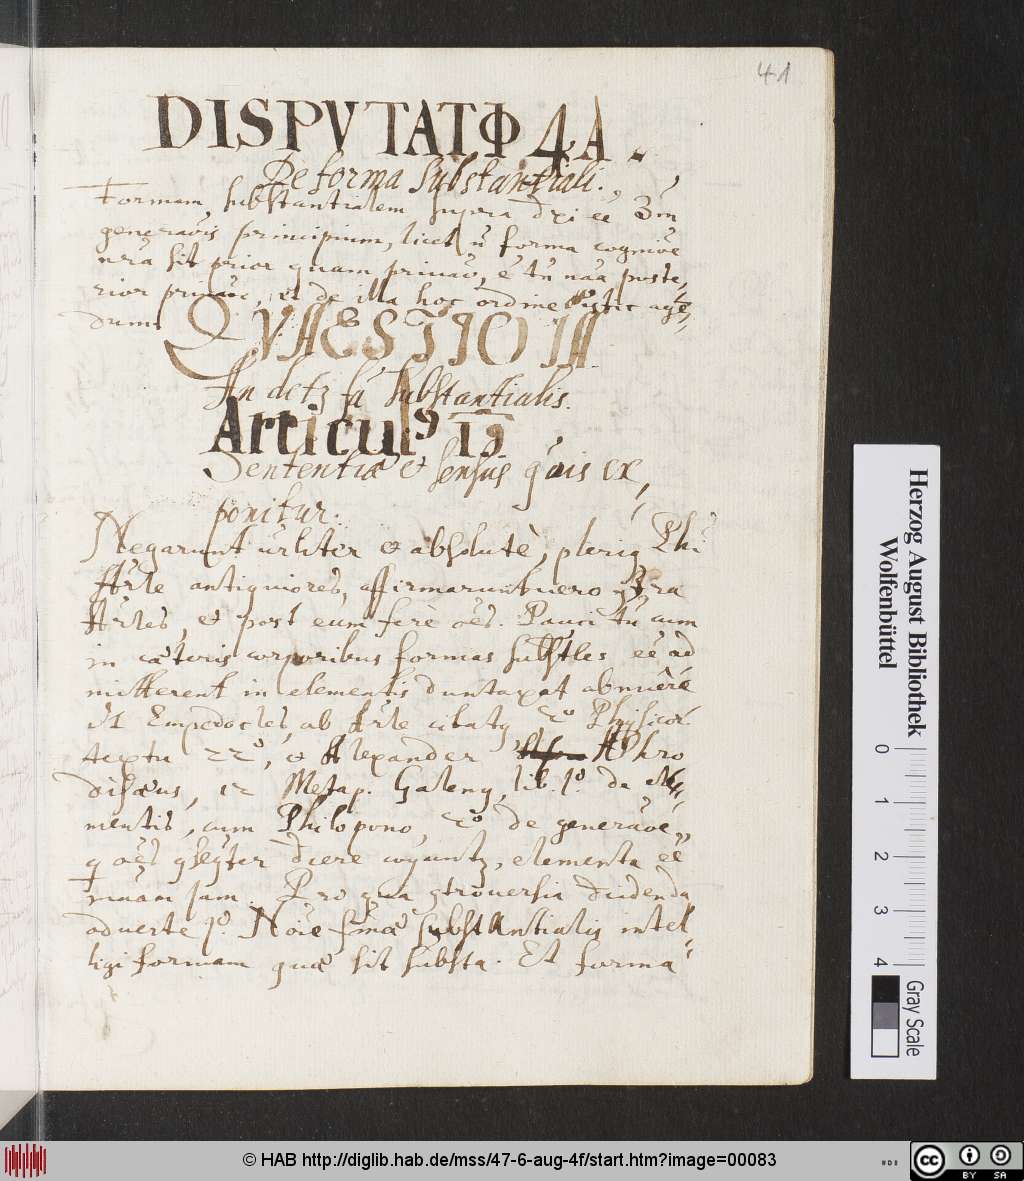 41
DISPVTATIO 4A.
De forma substantiali.
Formam substantialem supra dxi ee 3m
generaõis principium, licet forma cognioe
nra sit prior quam priuaõ, e tñ naa poste,
rior priuaõe, et de illa hoc ordine istic agẽ,
dum.
QVAESTIO IA
An detz fa substantialis.
Articul9 19
Sententiæ et sensus qõis ex,
ponitur.
Negarunt urliter et absolutè, pleriq Phi
Arle antiquiores, affirmarunt uero
Arles, et post eum ferè oẽs. Pauci tñ cum
in cæteris corporibus formas substles eẽ ad
mitterent in elementis duntaxat abnuêre
Vt Empedocles, ab Arle citatq 2o Physicor.
textu 22o, et Alexander Aphro
disæus, 12 Metap. Galenq, lib. 1o. de ele,
mentis, cum Philopono, 2o de generaõe,
q oẽs dicere coguntz, elementa eẽ
maam Pro qua gtrouersia
aduerte 1o. Noie fmæ substantialis intel,
ligi formam quæ sit substa. Et forma
Herzog August Bibliothek
Wolfenbüttel
0 1 2 3 4
Gray Scale
© HAB http://diglib.hab.de/mss/47-6-aug-4f/start.htm?image=00083
cc BY SA